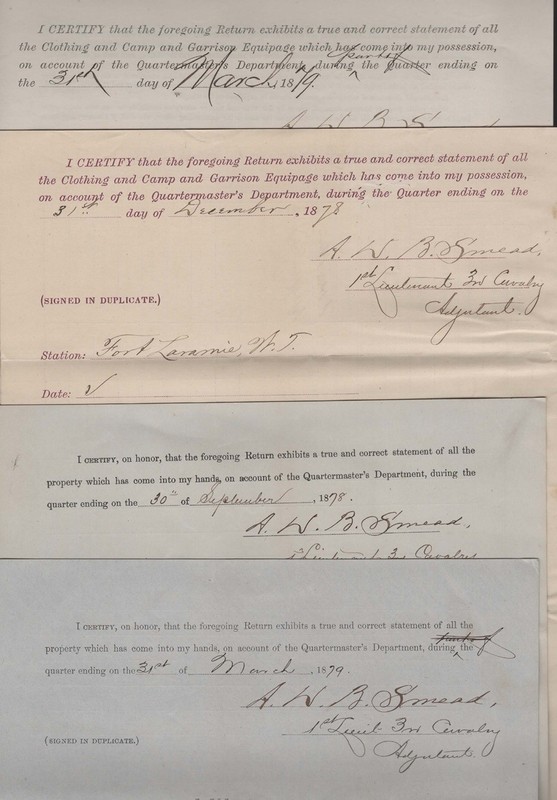 I CERTIFY that the foregoing Return exhibits a true and correct statement of all
the Clothing and Camp and Garrison Equipage which has come into my possession,
part of
on account of the Quartermaster's Department, during the Quarter ending on
the 31st day of March, 1879.
A. W. B. S
I CERTIFY that the foregoing Return exhibits a true and correct statement of all
the Clothing and Camp and Garrison Equipage which has come into my possession,
on account of the Quartermaster's Department, during the Quarter ending on the
31st day of December, 1878
A. W. B. Smead,
1st Lieutenant 3rd Cavalry
Adjutant.
(SIGNED IN DUPLICATE.)
Station: Fort Laramie, W. T.
Date:
I CERTIFY, on honor, that the foregoing Return exhibits a true and correct statement of all the
property which has come into my hands, on account of the Quartermaster's Department, during the
quarter ending on the 30th of September, 1878.
A. W. B. Smead,
1st Lieut 3rd Cavalry
I CERTIFY, on honor, that the foregoing Return exhibits a true and correct statement of all the
part of
property which has come into my hands, on account of the Quartermaster's Department, during the
quarter ending on the 31st of March, 1879.
A. W. B. Smead,
1st Lieut 3rd Cavalry
Adjutant.
(SIGNED IN DUPLICATE.)